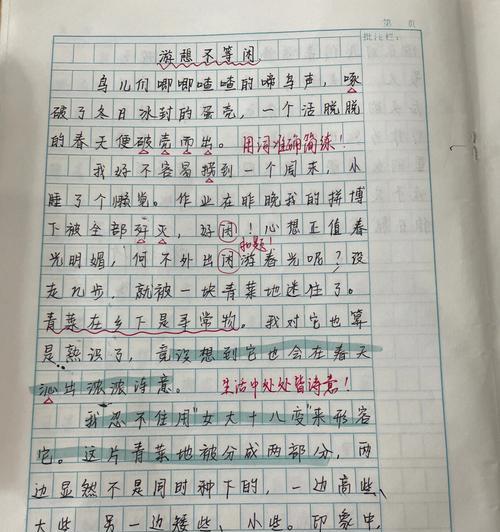 第 页
批注栏:
游想不等闲
鸟儿们唧唧喳喳的啼鸟声,啄
破了冬日冰封的蛋壳,一个活脱脱
的春天便破壳而出。用词准确简练!
我好不容易捞到一个周末,小
睡了个懒觉。作业在昨晚我的拼搏
下被全部歼灭,好闲!心想正值春
扣题!
光明媚,何不外出闲游春光呢?没
走几步,就被一块青菜地迷住了。
青菜在乡下是寻常物。我对它也算
是熟识了,竟没想到它也会在春天
沁出浓浓诗意。生活中处处皆诗意!
我忍不住用“女大十八变”来形容
它。这片青菜地被分成两部分,两
边显然不是同时种下的,一边高些、
大些,另一边矮些、小些。印象中